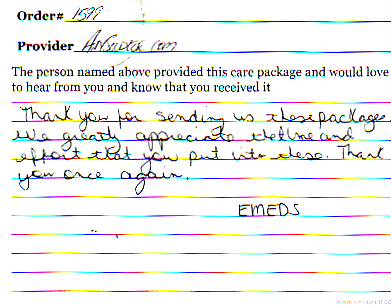 Order# 1599
Provider AnySoldier.com
The person named above provided this care package and would love
to hear from you and know that you received it
Thank you for sending us these packages
We greatly appreciate the time and
effort that you put into these. Thank
you once again.
EMEDS